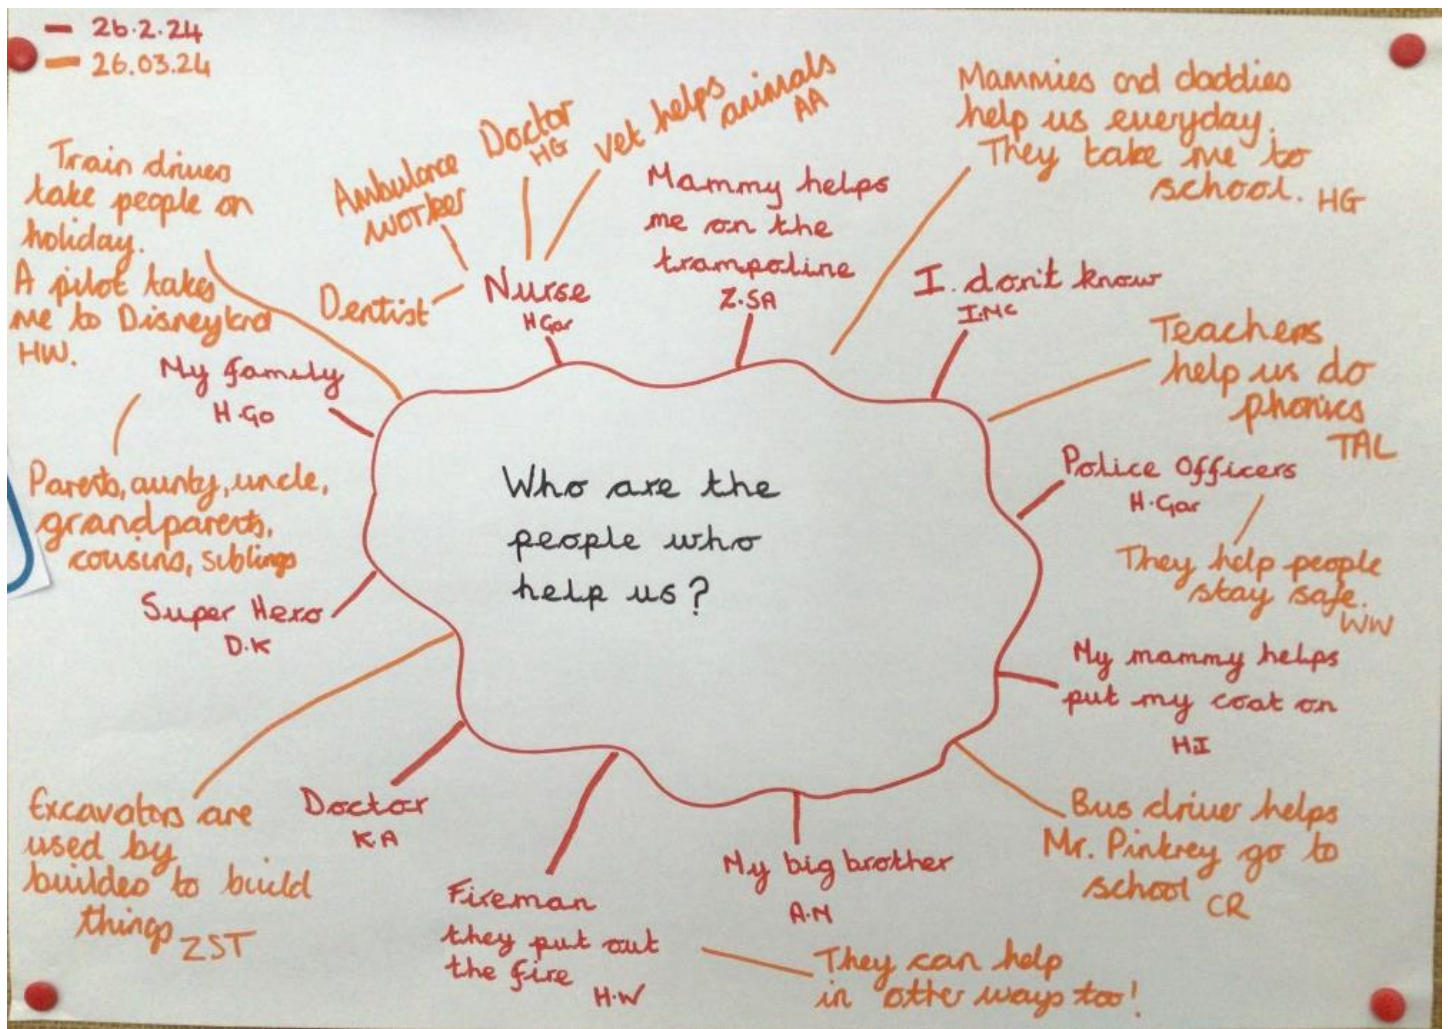 26.2.24
26.03.24
Train drivers
take people on
holiday.
A pilot takes
me to Disneyland
HW.
Ambulance
worker
Doctor
HG
Vet helps
animals
AA
Dentist
Nurse
H Gar
Mammy helps
me on the
trampoline
Z.SA
Mammies and daddies
help us everyday.
They take me to
school. HG
I don't know
I.Mc
Teachers
help us do
phonics
TAL
Police Officers
H.Gar
They help people
stay safe.
WW
My mammy helps
put my coat on
H.I
Bus driver helps
Mr. Pinkney go to
school CR
My big brother
A.M
They can help
in other ways too!
Fireman
they put out
the fire
H.W
Doctor
K.A
Excavators are
used by
builders to build
things ZST
Super Hero
D.K
Parents, aunty, uncle,
grandparents,
cousins, siblings
My family
H.Go
Who are the
people who
help us?